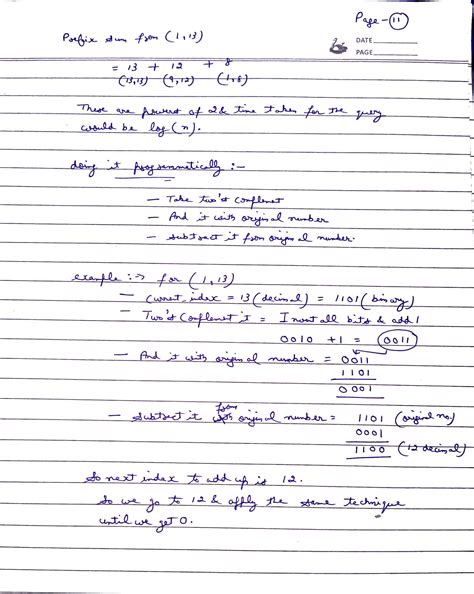 Page - 11
DATE
PAGE
Prefix sum from (1,13)
= 13 + 12 + 8
(13,13) (9,12) (1,8)
These are powers of 2 & time taken for the query
would be log(n).
doing it programmatically :-
— Take two's complement
— And it with original number
— subtract it from original number.
example :-> for (1,13)
— Current index = 13 (decimal) = 1101 (binary)
— Two's complement it = Invert all bits & add 1
0010 + 1 = 0011
— And it with original number = 0011
1101
0001
— Subtract it from original number = 1101 (original no.)
0001
1100 (12 decimal)
So next index to add up is 12.
So we go to 12 & apply the same technique
until we get 0.